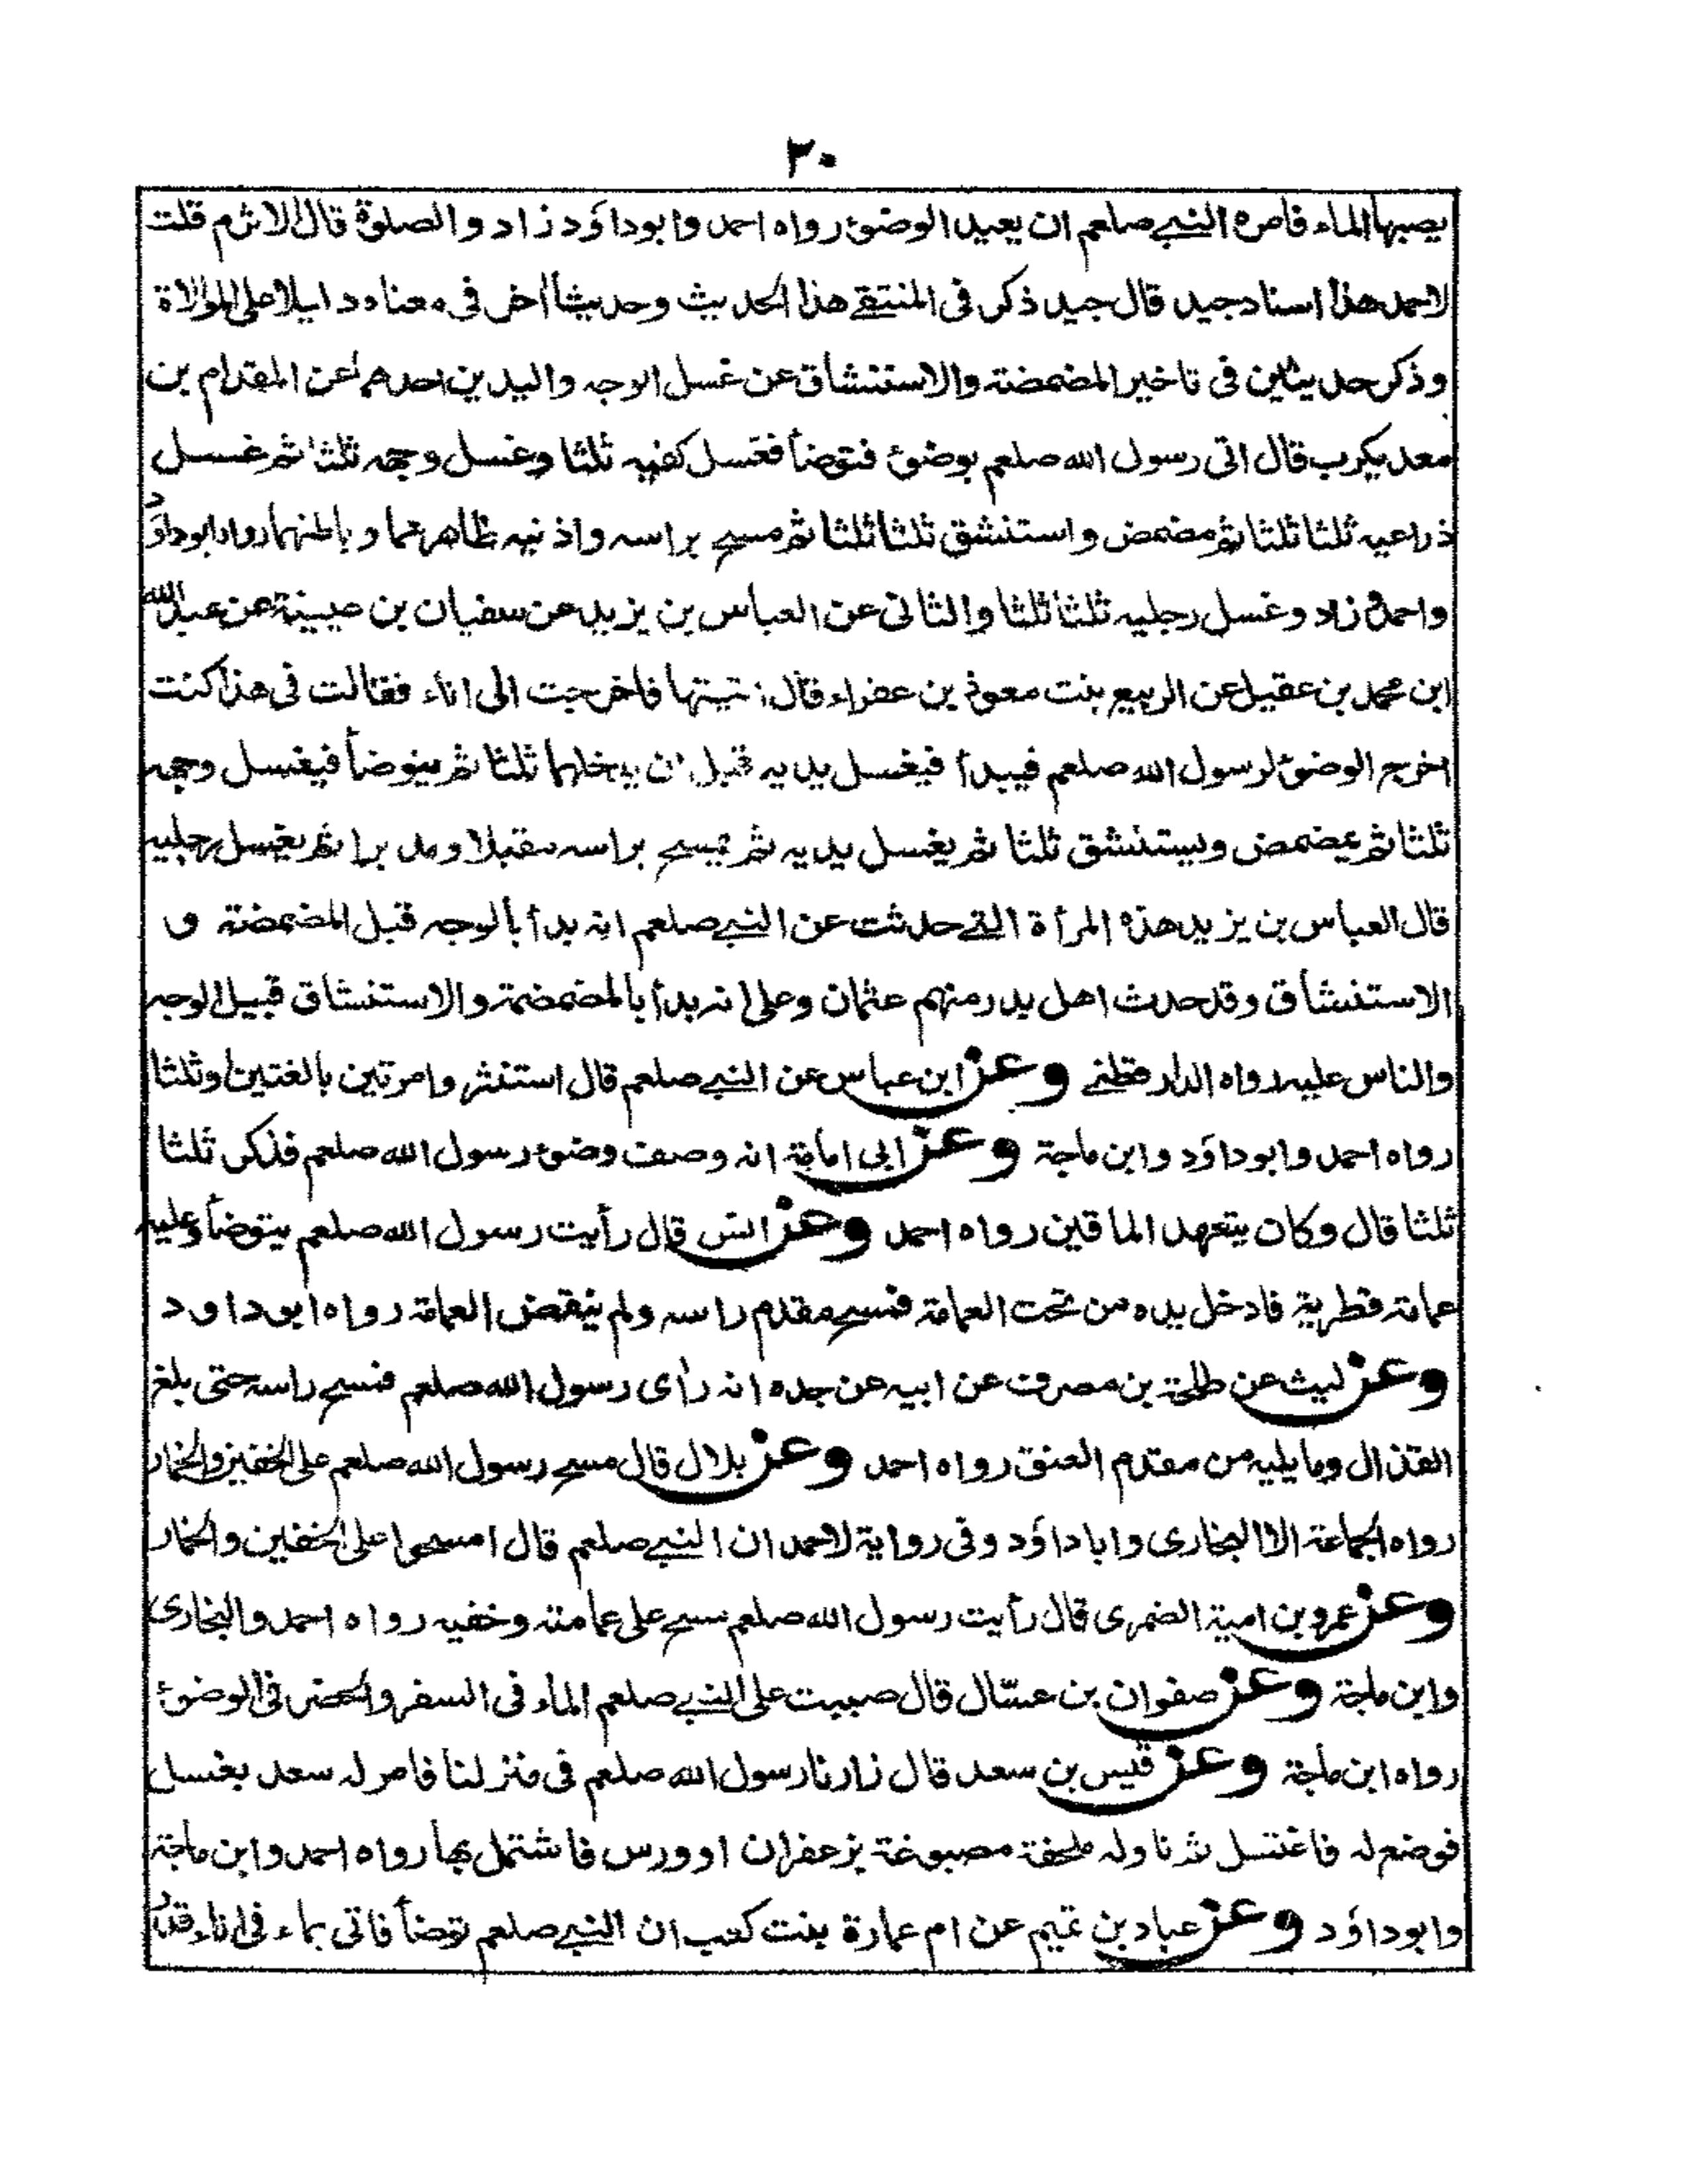 ٣٠
يصبها الماء فامره النبي صلعم ان يعيد الوضوء رواه احمد وابوداؤد زاد والصلوة قال الاثرم قلت
لاحمد هذا اسناد جيد قال جيد ذكر فى المنتقے هذا الحديث وحديثا أخر فى معناه دليلا على الموالاة
وذكر حديثين فى تاخير المضمضة والاستنشاق عن غسل الوجه واليدين احدهما عن المقدام بن
معديكرب قال اتى رسول الله صلعم بوضوء فتوضأ فغسل كفيه ثلثا وغسل وجهه ثلثا ثم غسل
ذراعيه ثلثا ثلثا ثم مضمض واستنشق ثلثا ثلثا ثم مسح براسه واذنيه ظاهرهما وباطنهما رواه ابوداؤد
واحمد زاد وغسل رجليه ثلثا ثلثا والثانى عن العباس بن يزيد عن سفيان بن عيينة عن عبد الله
ابن محمد بن عقيل عن الربيع بنت معوذ بن عفراء قال اتيتها فاخرجت الى اناء فقالت فى هذا كنت
اخرج الوضوء لرسول الله صلعم فيبدأ فيغسل يديه قبل ان يدخلهما ثلثا ثم يتوضأ فيغسل وجهه
ثلثا ثم يمضمض ويستنشق ثلثا ثم يغسل يديه ثم يمسح براسه مقبلا ومدبرا ثم يغسل رجليه
قال العباس بن يزيد هذه المرأة التے حدثت عن النبي صلعم انه بدأ بالوجه قبل المضمضة و
الاستنشاق وقد حدث اهل بدر منهم عثمان وعلى انه بدأ بالمضمضة والاستنشاق قبل الوجه
والناس عليه رواه الدارقطنے وعن ابن عباس عن النبي صلعم قال استنثروا مرتين بالغتين او ثلثا
رواه احمد وابوداؤد وابن ماجة وعن ابى امامة انه وصف وضوء رسول الله صلعم فذكر ثلثا
ثلثا قال وكان يتعهد الماقين رواه احمد وعن انس قال رأيت رسول الله صلعم يتوضأ وعليه
عمامة قطرية فادخل يده من تحت العمامة فمسح مقدم راسه ولم ينقض العمامة رواه ابوداود
وعن ليث عن طلحة بن مصرف عن ابيه عن جده انه رأى رسول الله صلعم فمسح راسه حتى بلغ
القذال وما يليه من مقدم العنق رواه احمد وعن بلال قال مسح رسول الله صلعم على الخفين والخمار
رواه الجماعة الا البخارى وابا داؤد وفى رواية لاحمد ان النبي صلعم قال امسحوا على الخفين والخمار
وعن عمرو بن امية الضمرى قال رأيت رسول الله صلعم مسح على عمامته وخفيه رواه احمد والبخارى
وابن ماجة وعن صفوان بن عسّال قال صببت على النبي صلعم الماء فى السفر والحضر فى الوضوء
رواه ابن ماجة وعن قيس بن سعد قال زارنا رسول الله صلعم فى منزلنا فامر له سعد بغسل
فوضع له فاغتسل ثم ناوله ملحفة مصبوغة بزعفران او ورس فاشتمل بها رواه احمد وابن ماجة
وابوداؤد وعن عباد بن تميم عن ام عمارة بنت كعب ان النبي صلعم توضأ فاتى بماء فى اناء قدر